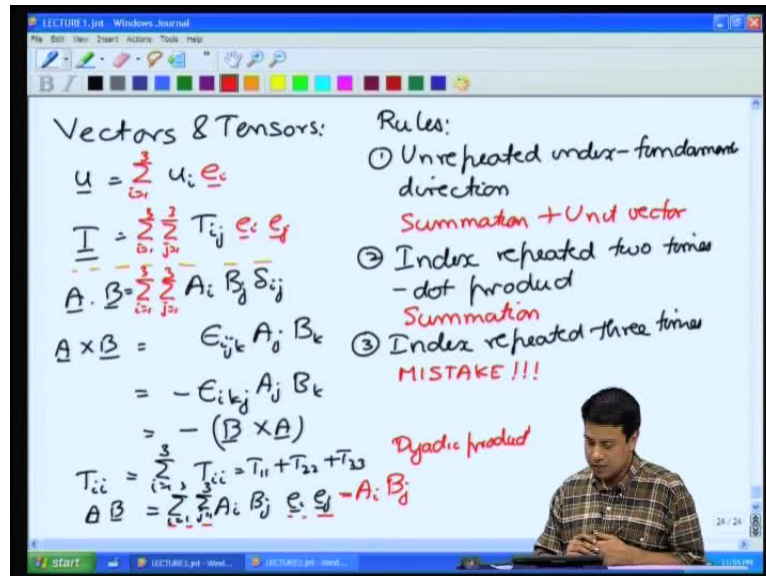 LECTURE1.jnt - Windows Journal
File Edit View Insert Actions Tools Help
B I
Vectors & Tensors:
u = Σ_{i=1}^{3} u_i e_i
T = Σ_{i=1}^{3} Σ_{j=1}^{3} T_{ij} e_i e_j
A . B = Σ_{i=1}^{3} Σ_{j=1}^{3} A_i B_j δ_{ij}
A × B = ε_{ijk} A_j B_k
= - ε_{ikj} A_j B_k
= - (B × A)
T_{ii} = Σ_{i=1}^{3} T_{ii} = T_{11} + T_{22} + T_{33}
A B = Σ_{i=1}^{3} Σ_{j=1}^{3} A_i B_j e_i e_j - A_i B_j
Rules:
① Unrepeated index - fundament
direction
Summation + Unit vector
② Index repeated two times
- dot product
Summation
③ Index repeated three times
MISTAKE!!!
Dyadic product
24 / 24
start
LECTURE1.jnt - Wind...
LECTURE2.jnt - Wind...
11:55 PM